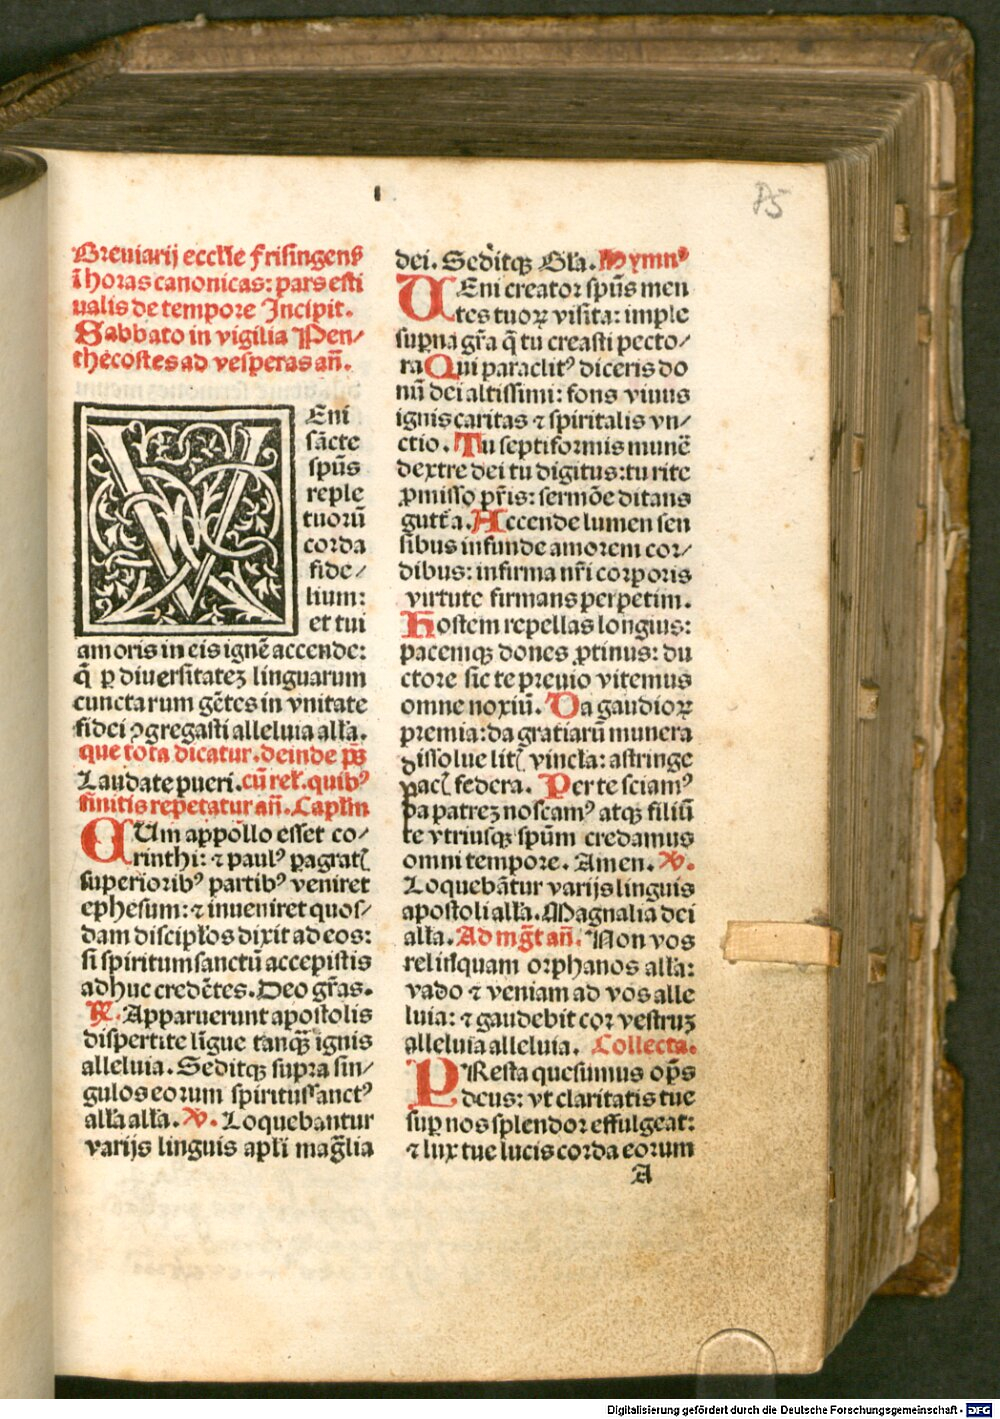 I
85
Breuiarij eccl'ie frisingenẜ
ī horas canonicas: pars esti
ualis de tempore Incipit.
Sabbato in vigilia Pen/
thecostes ad vesperas an̄.
VEni
sācte
spūs
reple
tuorū
corda
fide/
lium:
et tui
amoris in eis ignē accende:
q̄ ꝑ diuersitateꝫ linguarum
cunctarum gētes in vnitate
fidei ꝯgregasti alleluia all'a.
que tota dicatur. deinde pẜ
Laudate pueri. cū rel'. quibꝰ
finitis repetatur an̄. Cap'lm
CUm appollo esset co/
rinthi: ⁊ paulꝰ ꝑagratꝭ
superioribꝰ partibꝰ veniret
ephesum: ⁊ inueniret quos/
dam discip'los dixit ad eos:
si spiritum sanctū accepistis
adhuc credētes. Deo gr̄as.
℟. Apparuerunt apostolis
dispertite līgue tanq̄ꝫ ignis
alleluia. Seditqꝫ supra sin/
gulos eorum spiritussanctꝰ
all'a all'a. ℣. Loquebantur
varijs linguis ap'li maḡlia
dei. Seditqꝫ Gl'a. Hymnꝰ
VEni creator spūs men
tes tuoꝝ visita: imple
suꝑna gr̄a q̄ tu creasti pecto/
ra Qui paraclitꝰ diceris do
nū dei altissimi: fons viuus
ignis caritas ⁊ spiritalis vn/
ctio. Tu septiformis munē
dextre dei tu digitus: tu rite
ꝓmisso pr̄is: sermōe ditans
guttꝰa. Accende lumen sen
sibus infunde amorem cor/
dibus: infirma nr̄i corporis
virtute firmans perpetim.
Hostem repellas longius:
pacemqꝫ dones ꝓtinus: du
ctore sic te preuio vitemus
omne noxiū. Da gaudioꝝ
premia: da gratiarū munera
dissolue litꝭ vincl'a: astringe
pacꝭ federa. Per te sciamꝰ
da patreꝫ noscamꝰ atqꝫ filiū
te vtriusqꝫ spūm credamus
omni tempore. Amen. ℣.
Loquebātur varijs linguis
apostoli all'a. Magnalia dei
all'a. Ad mḡt an̄. Non vos
relinquam orphanos all'a:
vado ⁊ veniam ad vos alle
luia: ⁊ gaudebit cor vestruꝫ
alleluia alleluia. Collecta.
PResta quesumus op̄s
deus: vt claritatis tue
suꝑ nos splendor effulgeat:
⁊ lux tue lucis corda eorum
A
Digitalisierung gefördert durch die Deutsche Forschungsgemeinschaft - DFG